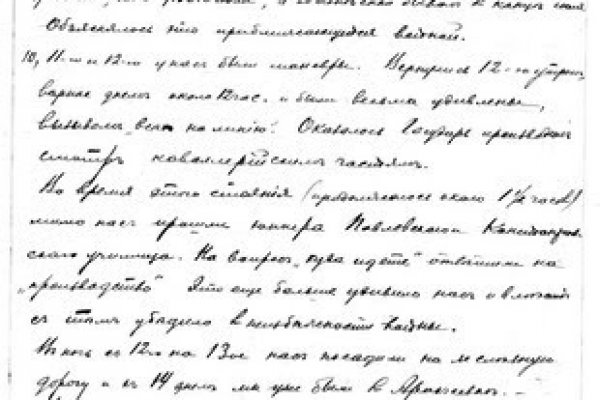 Объяснялось это приближающейся войной.
10, 11-го и 12-го у нас были маневры. Вернулись 12-го утром,
вернее днем около 12 час. и были весьма удивлены,
вызовом „всех на линию". Оказалось Государь производил
смотр кавалерийским частям.
Во время этого стояния (продолжалось около 1½ часов)
мимо нас прошли юнкера Павловского
ского училища. На вопрос „куда идете" ответили на
„производство" Это еще больше удивило нас и
с тем убедило в неизбежности войны.
В ночь с 12-го на 13-ое нас посадили на железную
дорогу и в 14 днем мы уже были в